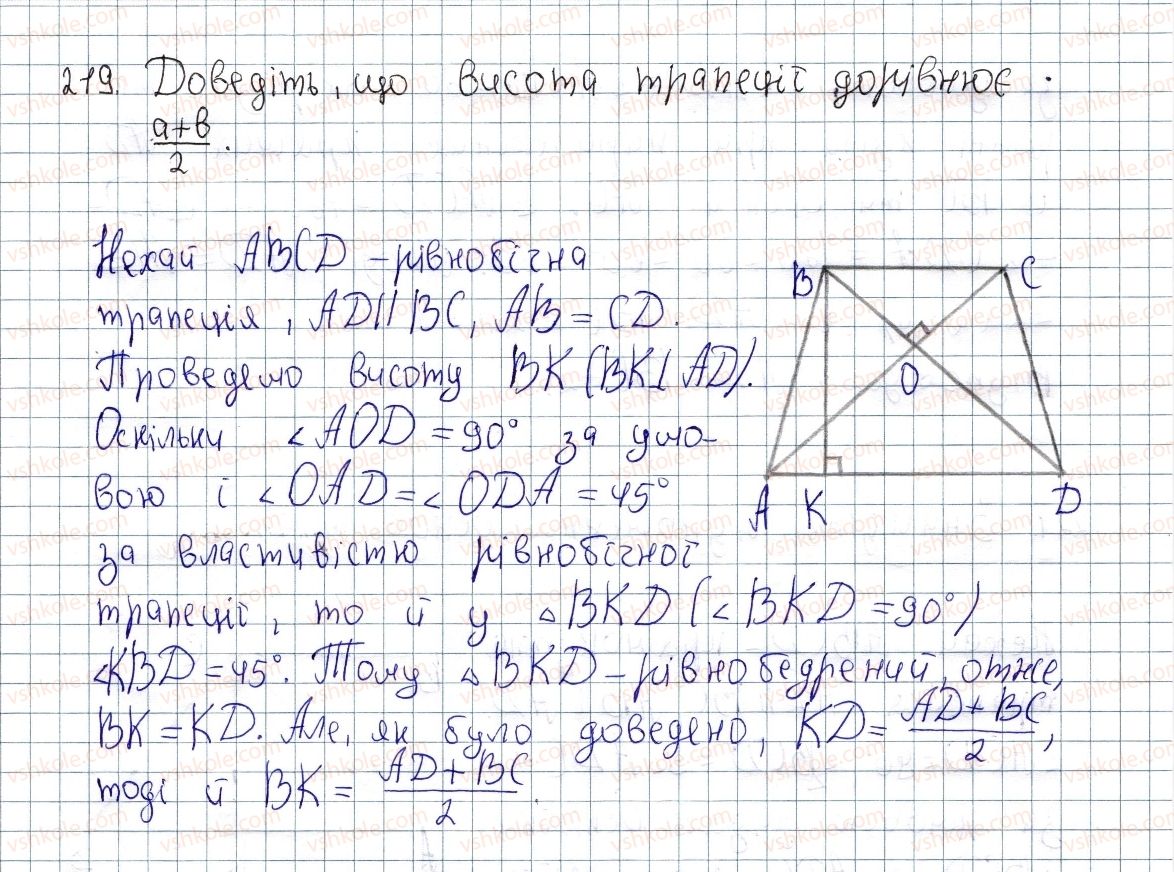 219. Доведіть, що висота трапеції дорівнює
a+b
2
Нехай ABCD – рівнобічна
трапеція, AD || BC, AB = CD.
Проведемо висоту BK (BK ⊥ AD).
Оскільки ∠AOD = 90° за умо-
вою і ∠OAD = ∠ODA = 45°
за властивістю рівнобічної
трапеції, то й у △BKD (∠BKD = 90°)
∠KBD = 45°. Тому △BKD – рівнобедрений, отже,
BK = KD. Але, як було доведено, KD = (AD + BC)/2,
тоді й BK = (AD + BC)/2.
B C
O
A K D
vshkole.com